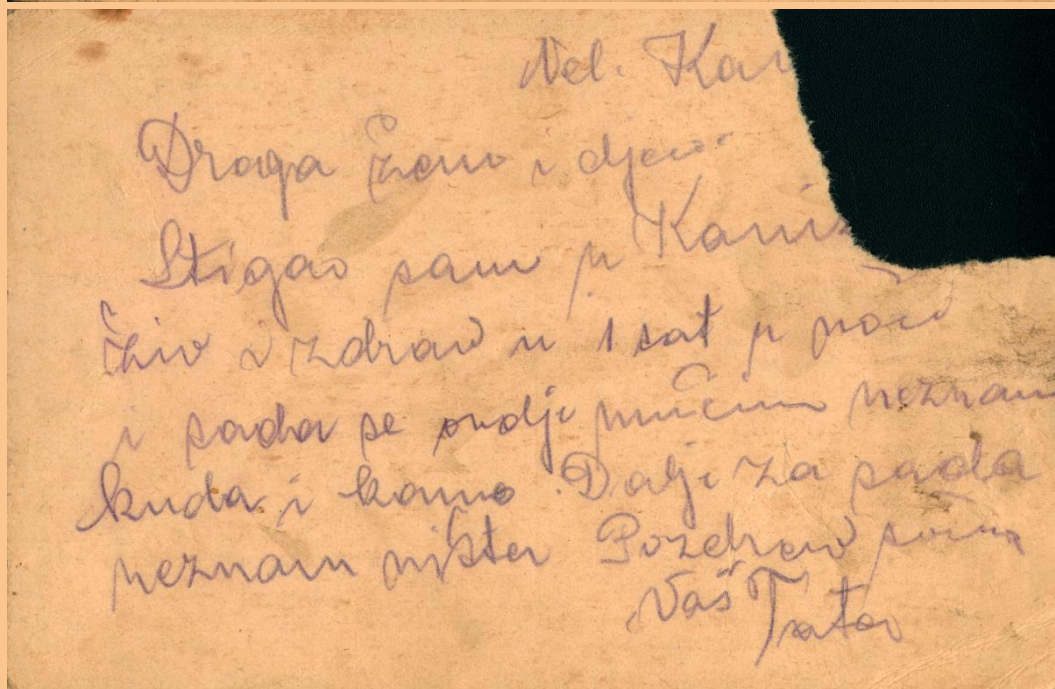 Vel. Kan
Draga ženo i djeco
Stigao sam u Kaniž
živ i zdrav u 1 sat u noći
i sada se ovdje mučim neznam
kuda i kamo. Dalje za sada
neznam ništa Pozdrav svima
Vaš Tata